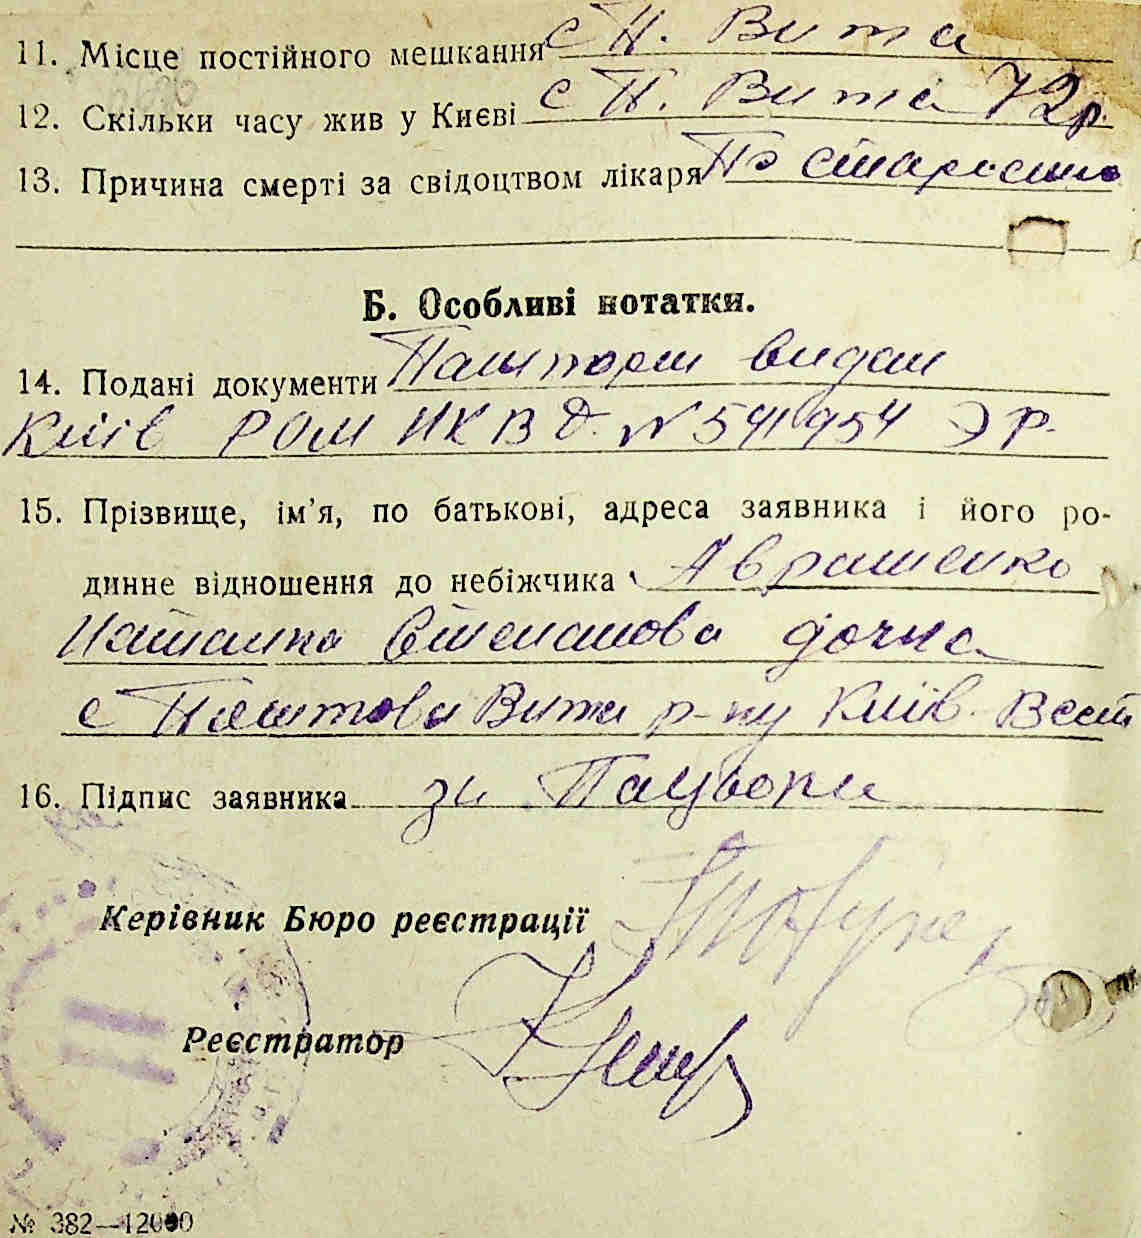 11. Місце постійного мешкання с П. Вита
12. Скільки часу жив у Києві с П. Вита 72 р.
13. Причина смерті за свідоцтвом лікаря По старости
Б. Особливі нотатки.
14. Подані документи Пашпорт видан
Київ РОМ НКВД. № 541954 Э Р.
15. Прізвище, ім'я, по батькові, адреса заявника і його ро-
динне відношення до небіжчика Авраменко
Наталка Степанова дочка
с Поштова Вита р-ну Київ.
16. Підпис заявника за
Керівник Бюро реєстрації
Реєстратор
№ 382—12000